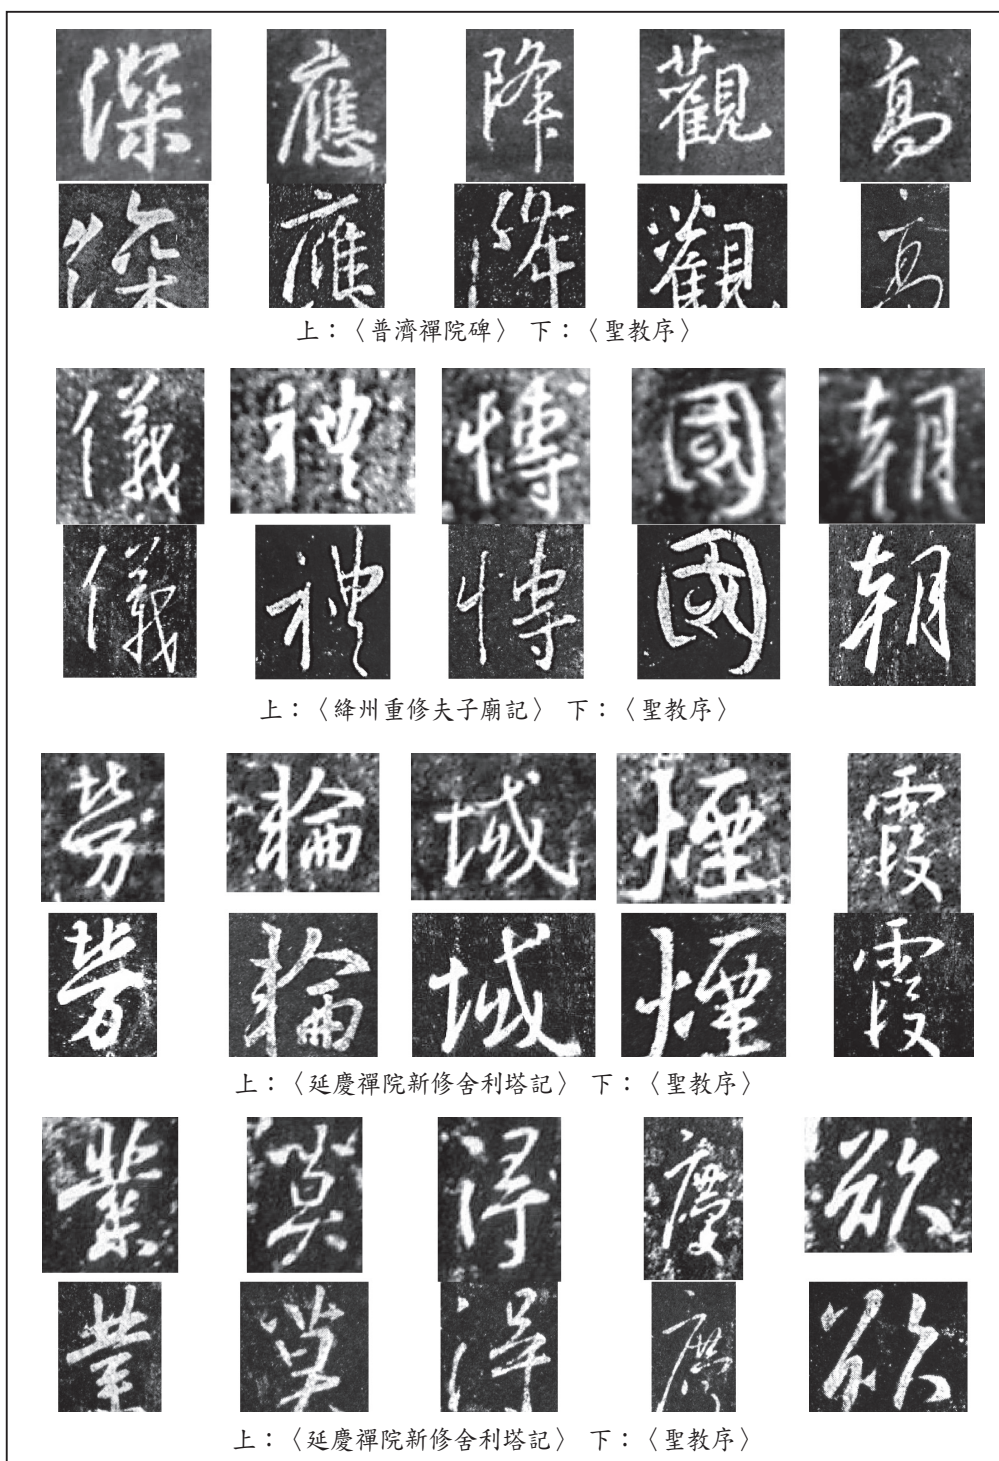 深 應 降 觀 高
深 應 降 觀 高
上：〈普濟禪院碑〉 下：〈聖教序〉
儀 禮 博 國 朝
儀 禮 博 國 朝
上：〈絳州重修夫子廟記〉 下：〈聖教序〉
勞 輪 域 煙 霞
勞 輪 域 煙 霞
上：〈延慶禪院新修舍利塔記〉 下：〈聖教序〉
業 莫 得 慶 欲
業 莫 得 慶 欲
上：〈延慶禪院新修舍利塔記〉 下：〈聖教序〉